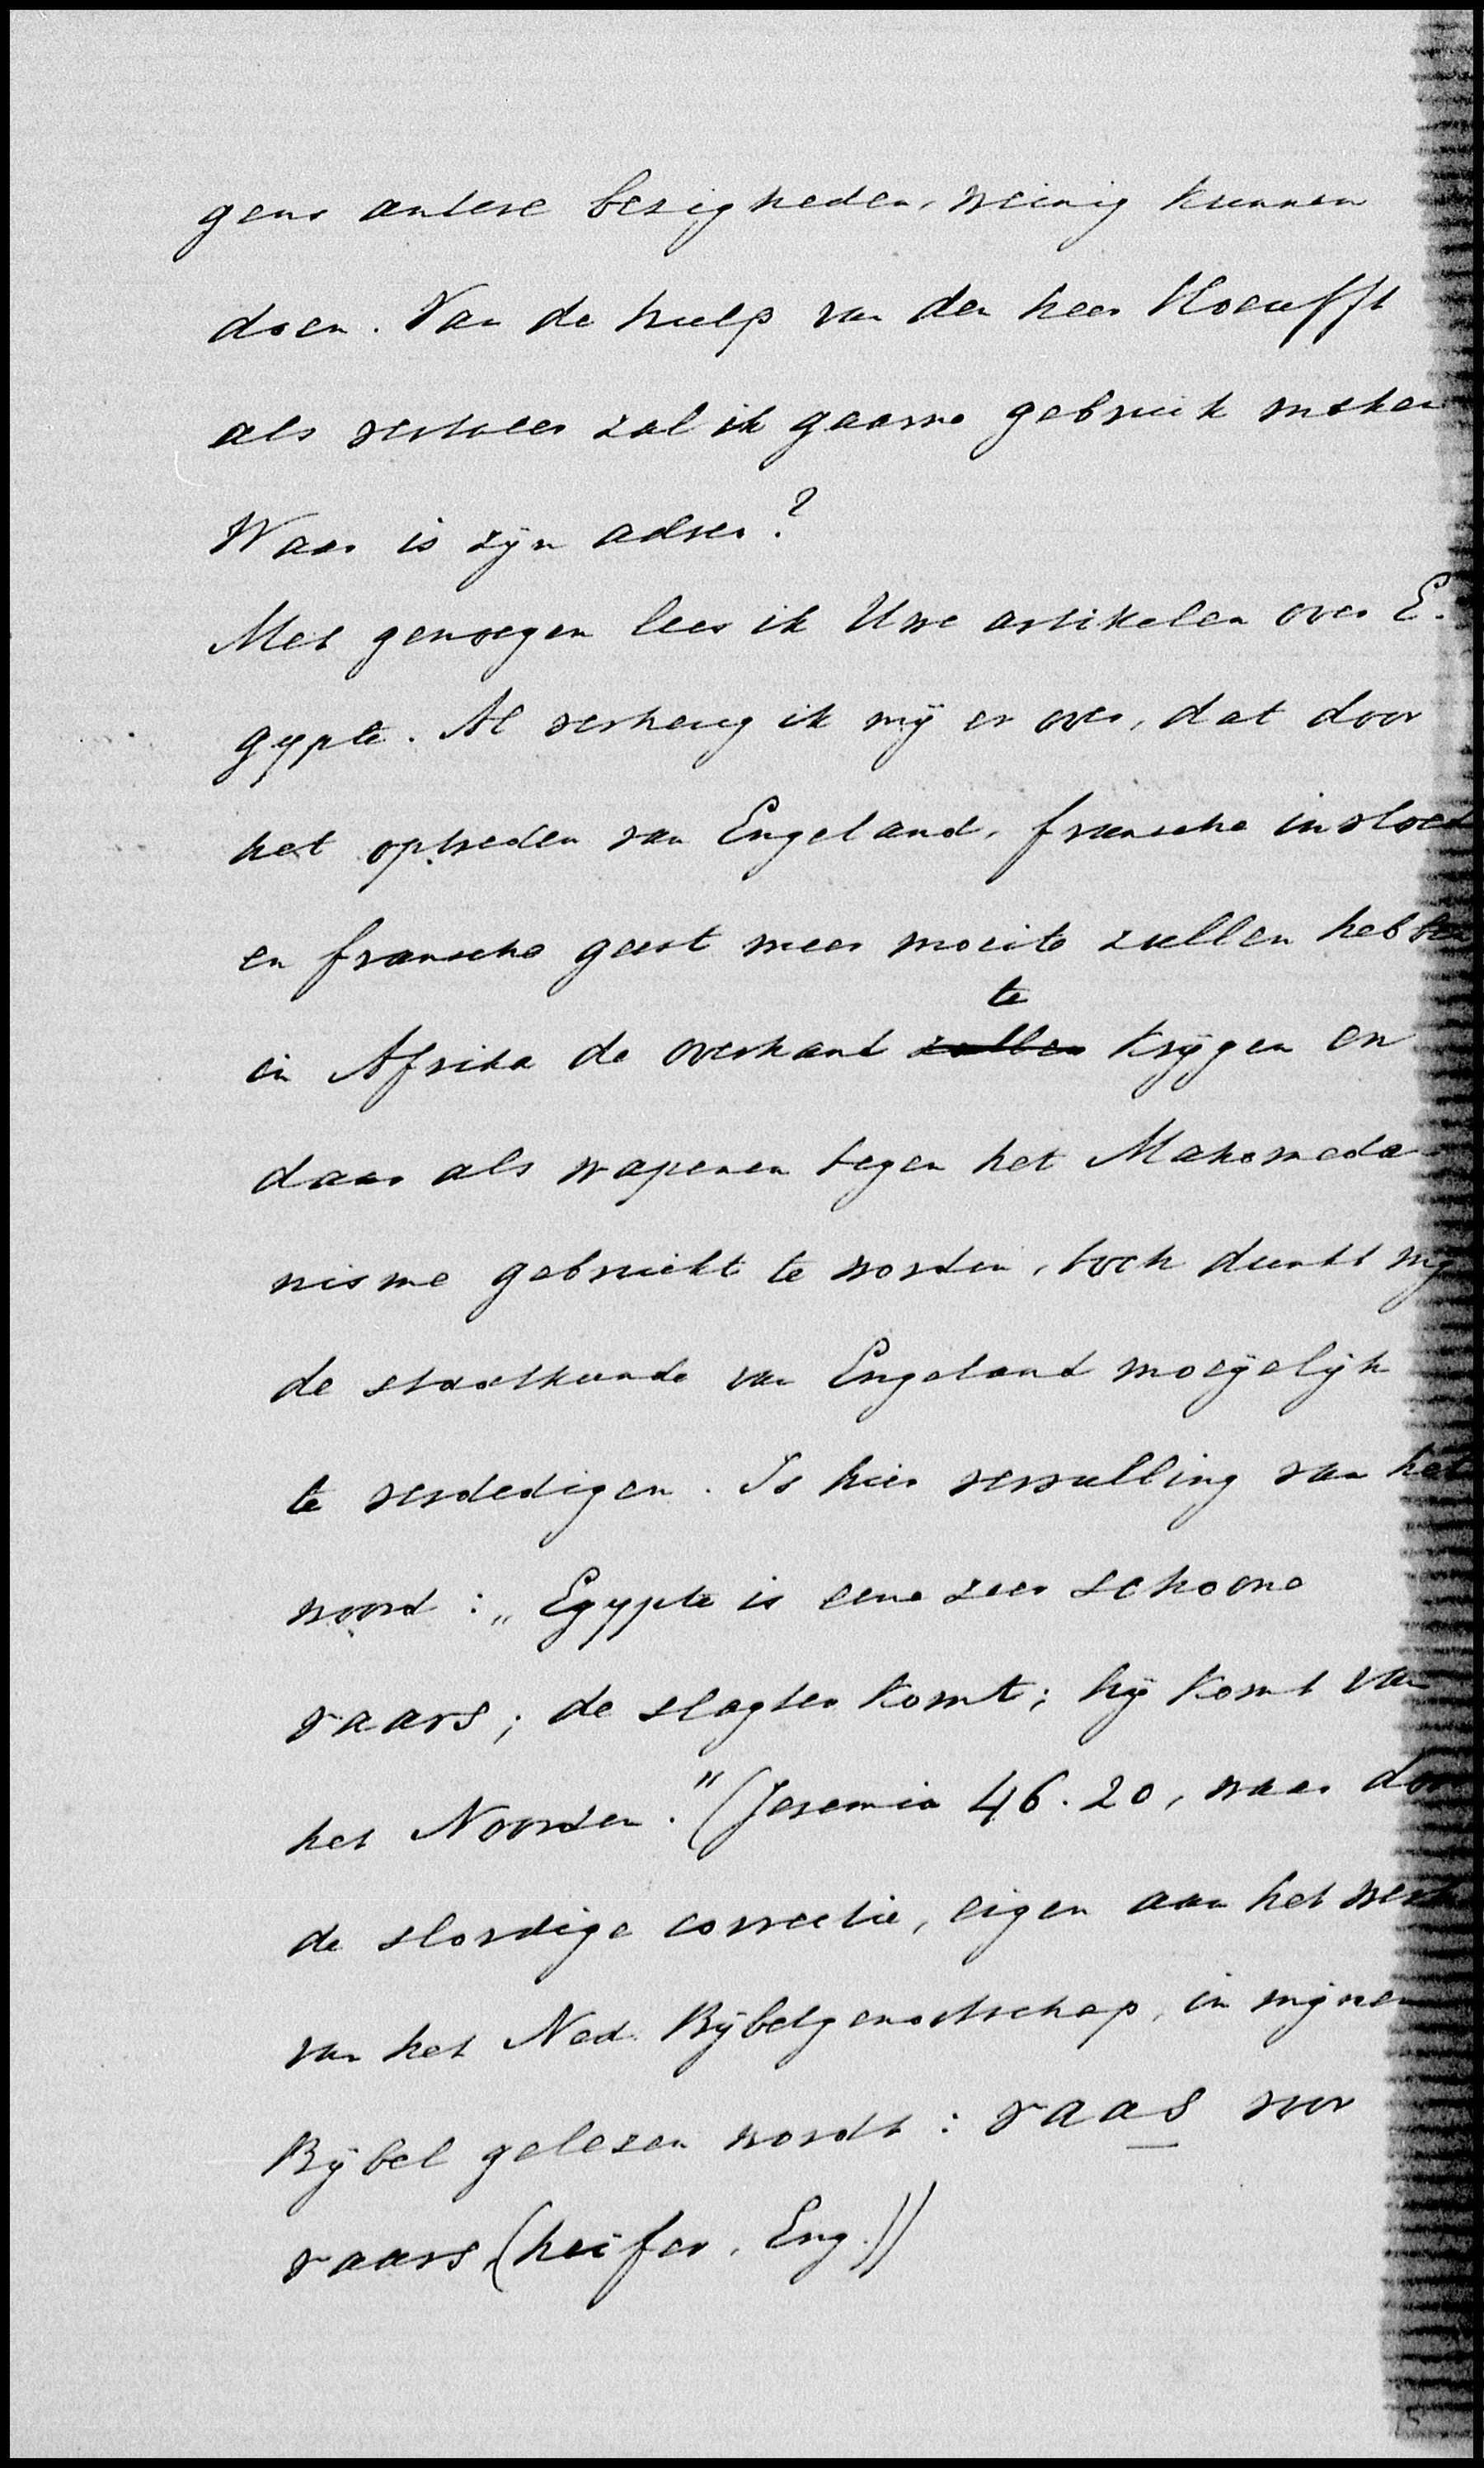 gens andere bezigheden, weinig kunnen
doen. Van de hulp van den heer Hoeufft
als vertaler zal ik gaarne gebruik maken
Waar is zijn adres?
Met genoegen lees ik Uwe artikelen over E-
gypte. Al verheug ik mij er over, dat door
het optreden van Engeland, fransche invloed
en fransche geest meer moeite zullen hebben
in Afrika de overhand ~~zullen~~ te krijgen en
daar als wapenen tegen het Mahomeda-
nisme gebruikt te worden, toch dunkt mij
de staatkunde van Engeland moeijelijk
te verdedigen. Is hier vervulling van het
woord: „Egypte is eene zeer schoone
vaars; de slagter komt; hij komt van
het Noorden." (Jeremia 46.20, waar door
de slordige correctie, eigen aan het werk
van het Ned. Bijbelgenootschap, in mijnen
Bijbel gelezen wordt: vaas voor
vaars (heifer, Eng.))